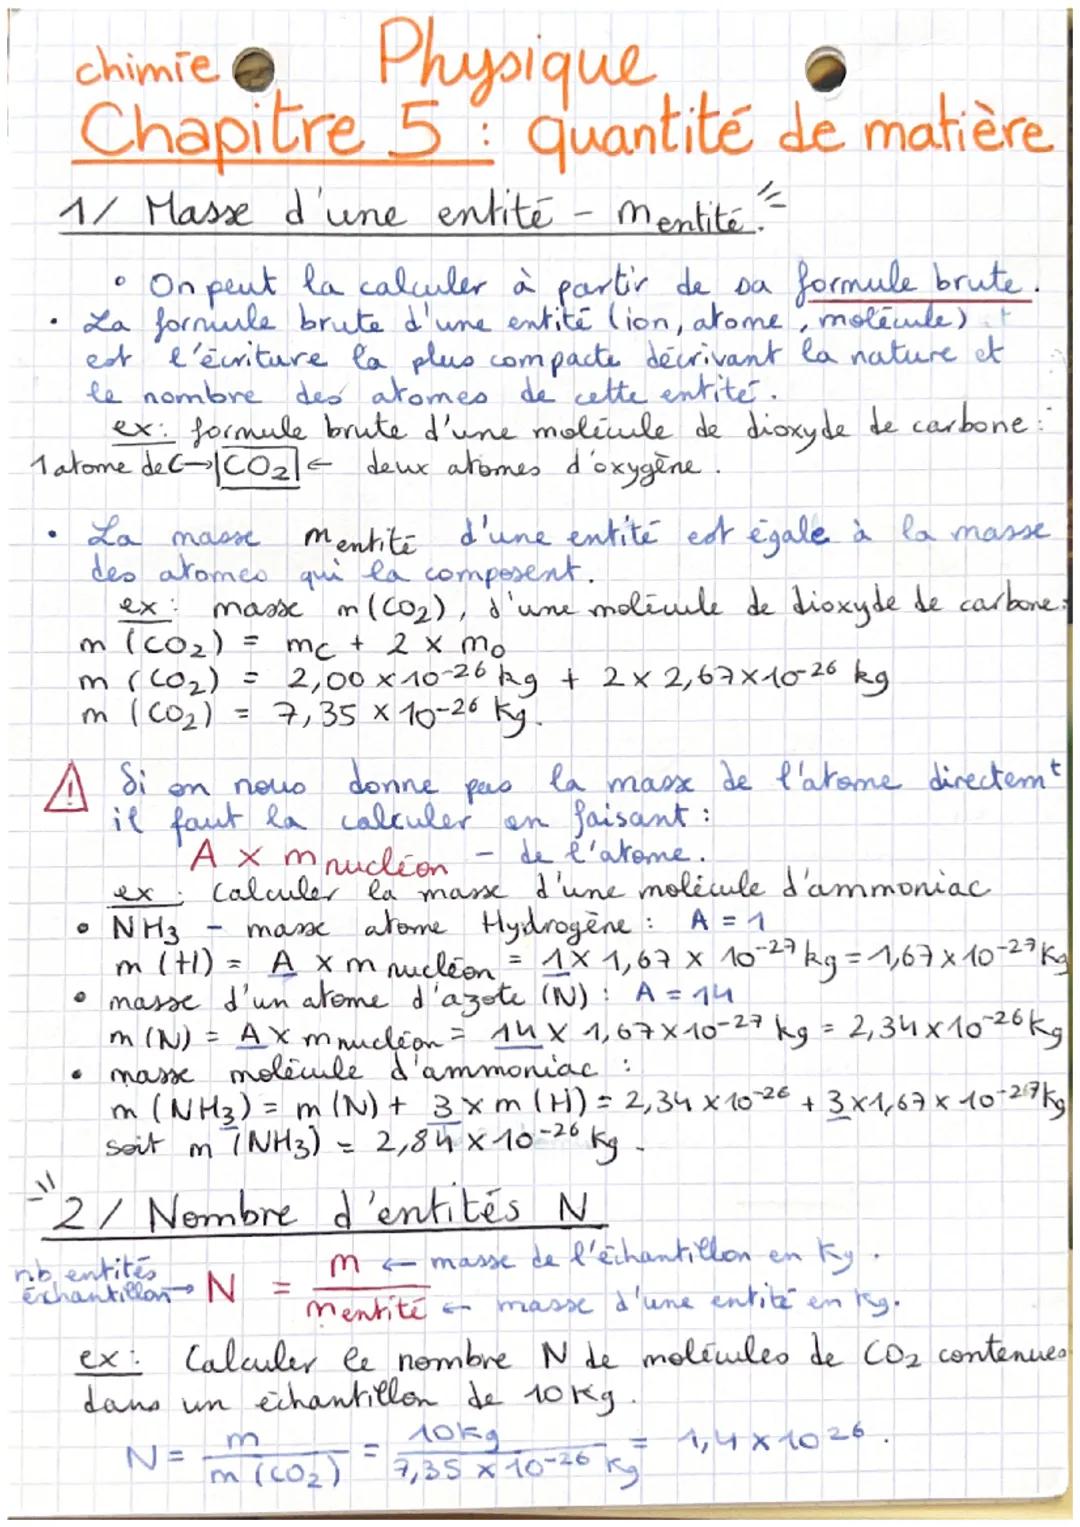 chimie Physique
Chapitre 5 : quantité de matière
1/ Masse d'une entité - mentité.
• On peut la calculer à partir de sa formule brute.
• La formule brute d'une entité (ion, atome, molécule)
est l'écriture la plus compacte décrivant la nature et
le nombre des atomes de cette entité.
ex: formule brute d'une molécule de dioxyde de carbone :
1 atome de C→ CO₂ ← deux atomes d'oxygène.
• La masse mentité d'une entité est égale à la masse
des atomes qui la composent.
ex : masse m(CO₂), d'une molécule de dioxyde de carbone:
m (CO₂) = mc + 2 x mo
m (CO₂) = 2,00 x 10-26 kg + 2 x 2,67x10-26 kg
m (CO₂) = 7,35 x 10-26 kg.
⚠ Si on nous donne pas la masse de l'atome directemt
il faut la calculer en faisant :
A x mnucléon - de l'atome.
ex : Calculer la masse d'une molécule d'ammoniac
• NH3 - masse atome Hydrogène : A = 1
m (H) = A x mnucléon = 1x 1,67 x 10-27 kg = 1,67 x 10-27 kg
• masse d'un atome d'azote (N) : A = 14
m (N) = A x mnucléon = 14 x 1,67x10-27 kg = 2,34x10-26 kg
• masse molécule d'ammoniac :
m (NH3) = m (N) + 3 x m (H) = 2,34 x 10-26 + 3x1,67 x 10-27 kg
soit m (NH3) = 2,84 x 10-26 kg.
2 / Nombre d'entités N
nb entités
échantillon → N = m ← masse de l'échantillon en kg.
mentité ← masse d'une entité en kg.
ex : Calculer le nombre N de molécules de CO₂ contenues
dans un échantillon de 10 kg.
N = m / m (CO₂) = 10kg / 7,35 x 10-26 kg = 1,4 x 10 26.